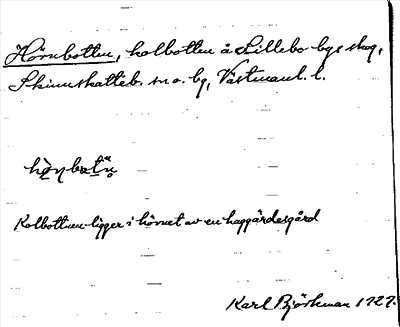 Hörnbotten, kolbotten å Lillebo bys skog,
Skinnskatteb. sn o. bg, Västmanl. l.
Kolbottnen ligger i hörnet av en haggärdesgård
Karl Björkman 1927.